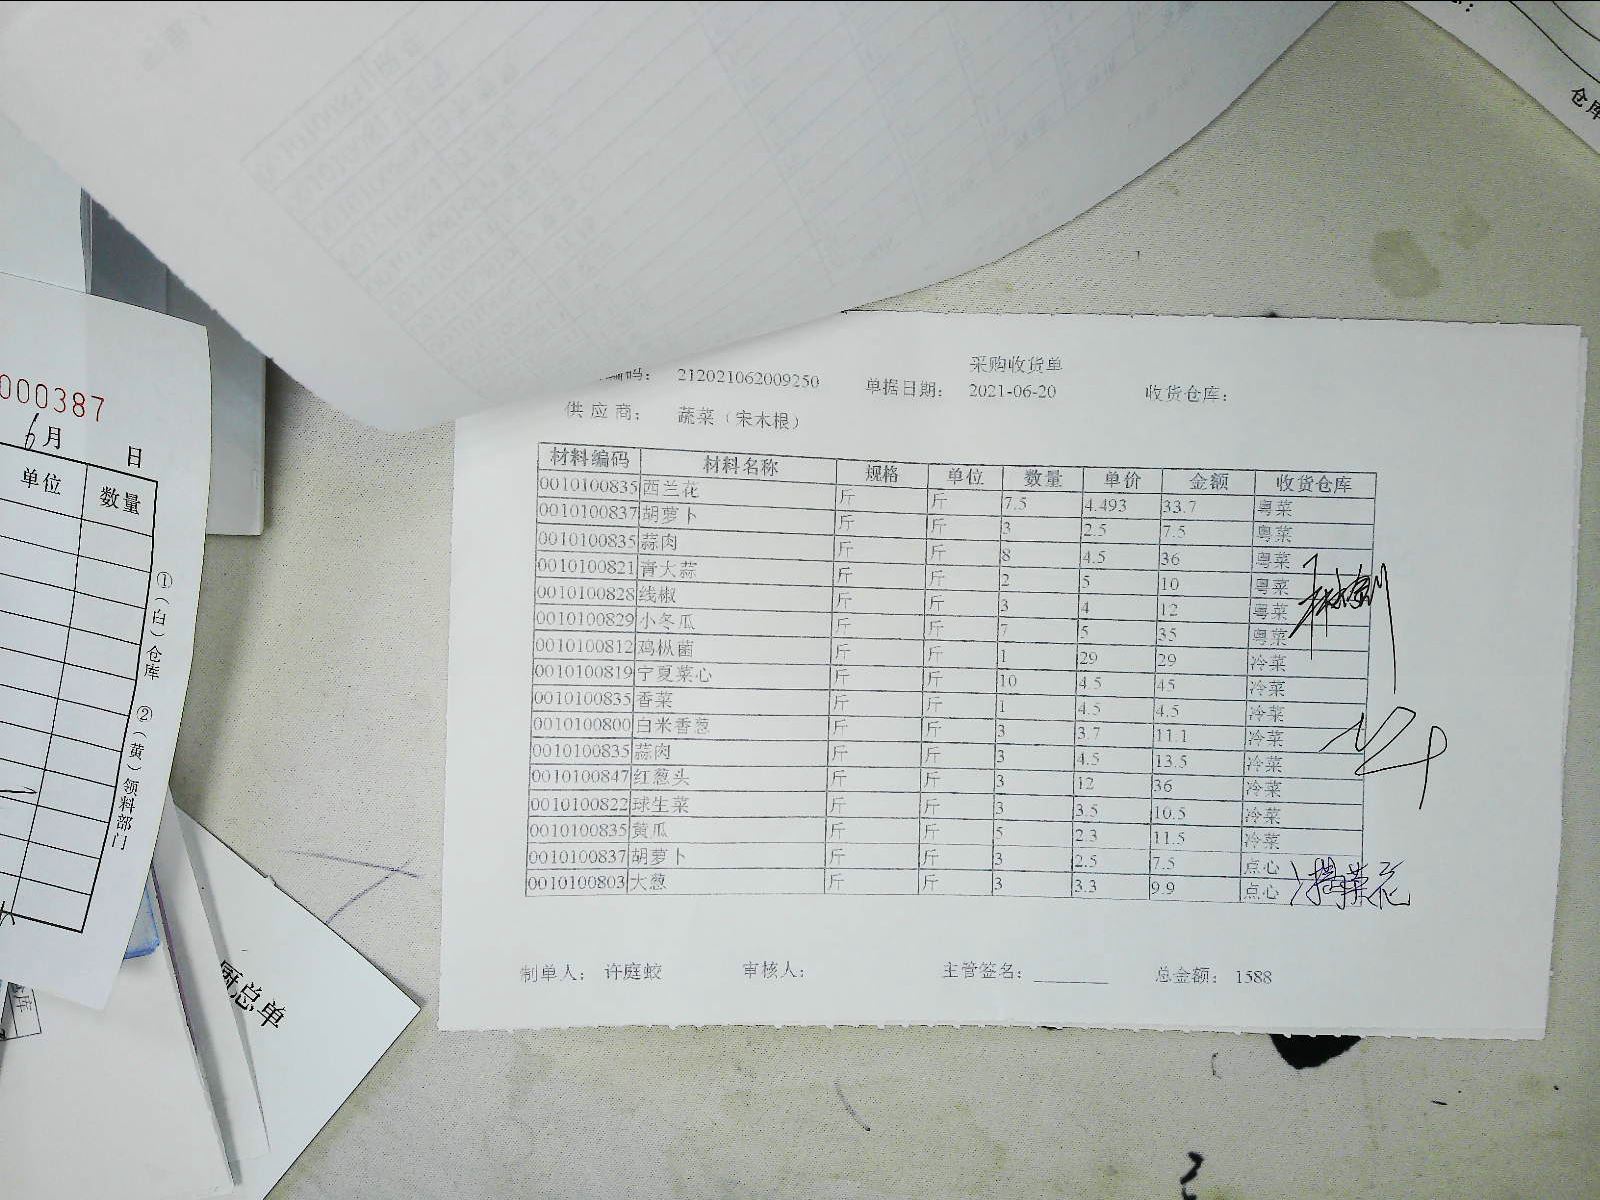 采购收货单
编码： 212021062009250 单据日期： 2021-06-20 收货仓库：
供 应 商： 蔬菜（宋木根）
材料编码 材料名称 规格 单位 数量 单价 金额 收货仓库
0010100835 西兰花 斤 斤 7.5 4.493 33.7 粤菜
0010100837 胡萝卜 斤 斤 3 2.5 7.5 粤菜
0010100835 蒜肉 斤 斤 8 4.5 36 粤菜
0010100821 青大蒜 斤 斤 2 5 10 粤菜
0010100828 线椒 斤 斤 3 4 12 粤菜
0010100829 小冬瓜 斤 斤 7 5 35 粤菜
0010100812 鸡枞菌 斤 斤 1 29 29 冷菜
0010100819 宁夏菜心 斤 斤 10 4.5 45 冷菜
0010100835 香菜 斤 斤 1 4.5 4.5 冷菜
0010100800 白米香葱 斤 斤 3 3.7 11.1 冷菜
0010100835 蒜肉 斤 斤 3 4.5 13.5 冷菜
0010100847 红葱头 斤 斤 3 12 36 冷菜
0010100822 球生菜 斤 斤 3 3.5 10.5 冷菜
0010100835 黄瓜 斤 斤 5 2.3 11.5 冷菜
0010100837 胡萝卜 斤 斤 3 2.5 7.5 点心
0010100803 大葱 斤 斤 3 3.3 9.9 点心
制单人： 许庭蛟 审核人： 主管签名：________ 总金额： 1588
000387
6月 日
单位 数量
①（白）仓库 ②（黄）领料部门
厨总单
仓库
库